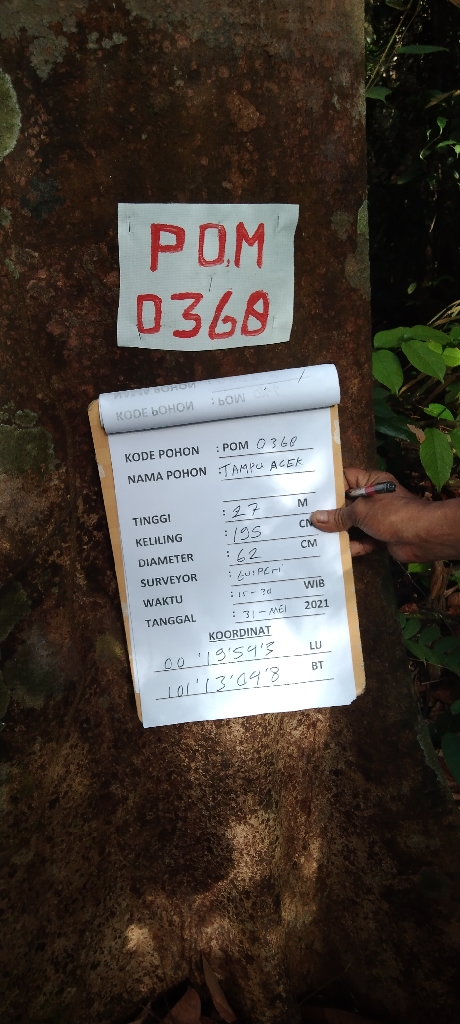 POM
0368
NAMA POHON
KODE POHON : POM
KODE POHON : POM 0368
NAMA POHON : TAMPU AGEK
TINGGI : 27 M
KELILING : 195 CM
DIAMETER : 62 CM
SURVEYOR :
WAKTU : 15-30 WIB
TANGGAL : 31-MEI 2021
KOORDINAT
00'19'59'3 LU
101'13'09'8 BT